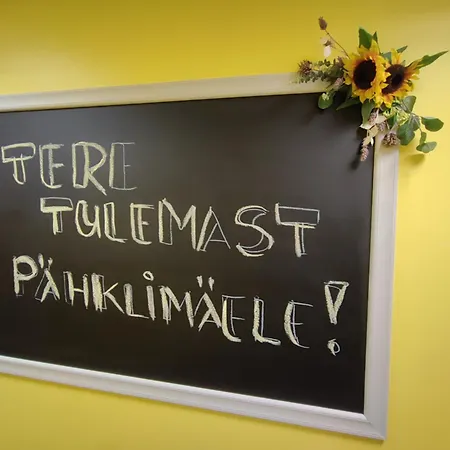 TERE
TULEMAST
PÄHKLiMÄELE!